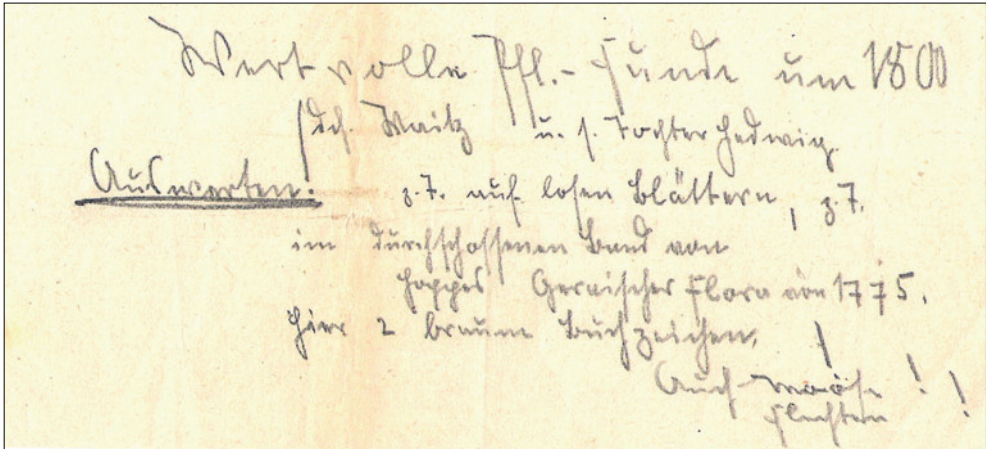 Wertvolle Pfl.-Funde um 1800
dch. Waitz u. s. Tochter Hedwig.
Auswerten!
z. T. auf losen Blättern, z. T.
im durchschossenen Band von
Hoppes Geraischer Flora von 1775.
Hier 2 braune Buchzeichen.
Auch Moose !!
Flechten